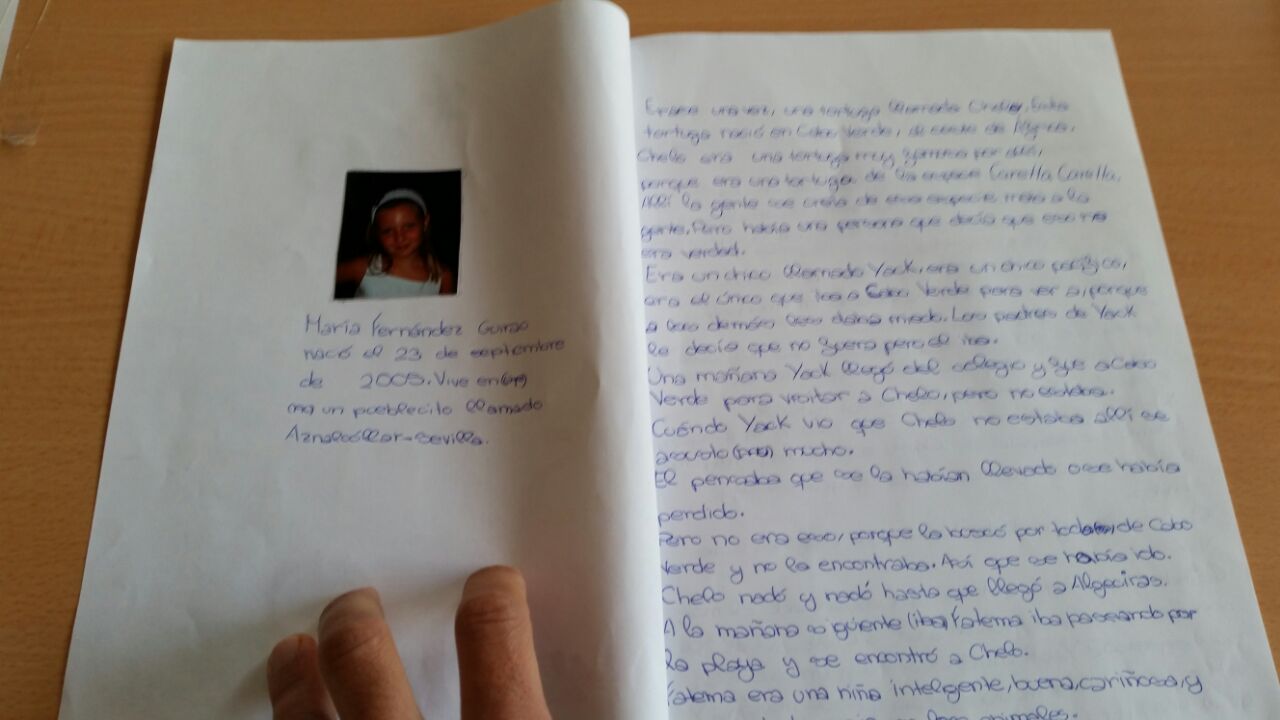 María Fernández Guirao
nació el 23 de septiembre
de 2005. Vive en
un pueblecito llamado
Aznalcóllar-Sevilla.
Erase una vez, una tortuga llamada Chelo. Esta
tortuga nació en Cabo Verde, al oeste de África.
Chelo era una tortuga muy famosa por allí,
porque era una tortuga de la especie Caretta Caretta.
Allí la gente se creía de esa especie a la
gente. Pero había una persona que decía que eso no
era verdad.
Era un chico llamado Yack, era un chico pacífico,
era el único que iba a Cabo Verde para ver a, porque
a los demás les daba miedo. Los padres de Yack
le decía que no fuera pero el iba.
Una mañana Yack llegó del colegio y fue a Cabo
Verde para visitar a Chelo, pero no estaba.
Cuándo Yack vio que Chelo no estaba allí se
asusto mucho.
El pensaba que se la habían llevado o se había
perdido.
Pero no era eso, porque la buscó por todo, de Cabo
Verde y no la encontraba. Así que se había ido.
Chelo nadó y nadó hasta que llegó a Algeciras.
A la mañana siguiente (iba) Fatema iba paseando por
la playa y se encontró a Chelo.
Fatema era una niña inteligente, buena, cariñosa, y
los animales.